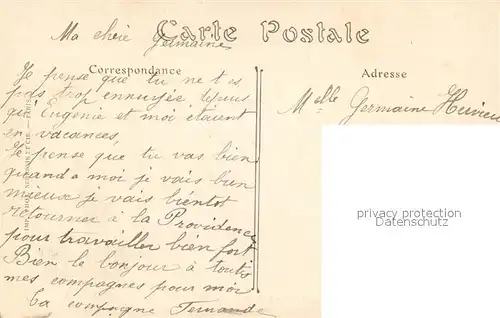 Ma chère Germaine
Carte Postale
Correspondance
Je pense que tu ne t es
pas trop ennuyée depuis
que Eugenie et moi étaient
en vacances,
Je pense que tu vas bien
quand a moi je vais bien
mieux je vais bientot
retourner à la Providence
pour travailler bien fort
Bien le bonjour à toute
mes compagnes pour moi
Ta compagne Fernande
Adresse
Melle Germaine
privacy protection
Datenschutz